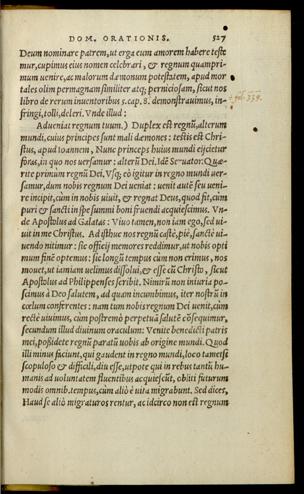 DOM. ORATIONIS. 527
Deum nominare patrem, ut erga eum amorem habere teste
mur, cupimus eius nomen celebrari, & regnum quamprimi
mum uenire, ac malorum dæmonum potestatem, apud mor
tales olim permagnam similiter atq; perniciosam, sicut nos
libro de rerum inuentoribus 5. cap. 8. demonstrauimus, in-
fringi, tolli, deleri. Vnde illud:
Adueniat regnum tuum.) Duplex est regnũ, alterum
mundi, cuius principes sunt mali dæmones: testis est Chri-
stus, apud Ioannem, Nunc princeps huius mundi eijcietur
foras, in quo nos uersamur: alterũ Dei. Idẽ Seruator: Quæ-
rite primum regnũ Dei. Vsq; eò igitur in regno mundi uer-
samur, dum nobis regnum Dei ueniat: uenit autẽ seu ueni-
re incipit, cùm in nobis uiuit, & regnat Deus, quod fit, cùm
puri & sancti in spe summi boni fruendi acquiescimus. Vn-
de Apostolus ad Galatas: Viuo tamen, non iam ego, sed ui-
uit in me Christus. Ad isthuc nos regnũ castè, piè, sanctè ui-
uendo nitimur: sic officij memores reddimur, ut nobis opti
mum finẽ optemus: sic longũ tempus cùm non erimus, nos
mouet, ut iamiam uelimus dissolui, & esse cũ Christo, sicut
Apostolus ad Philippenses scribit. Nimirũ non iniuria po-
scimus à Deo salutem, ad quam incumbimus, iter nostrũ in
cœlum conferentes: nam tum nobis regnum Dei uenit, cùm
rectè uiuimus, cùm postremò perpetuâ salutẽ cõsequimur,
secundum illud diuinum oraculum: Venite benedicti patris
mei, possidete regnũ paratũ uobis ab origine mundi. Quod
illi minus faciunt, qui gaudent in regno mundi, loco tametsi
scopuloso & difficili, diu esse, utpote qui in rebus tantũ hu-
manis ad uoluntatem fluentibus acquiescũt, obliti futurum
modis omnib. tempus, cùm aliò è uita migrabunt. Sed dices,
Haud se aliò migraturos rentur, ac idcirco non est regnum